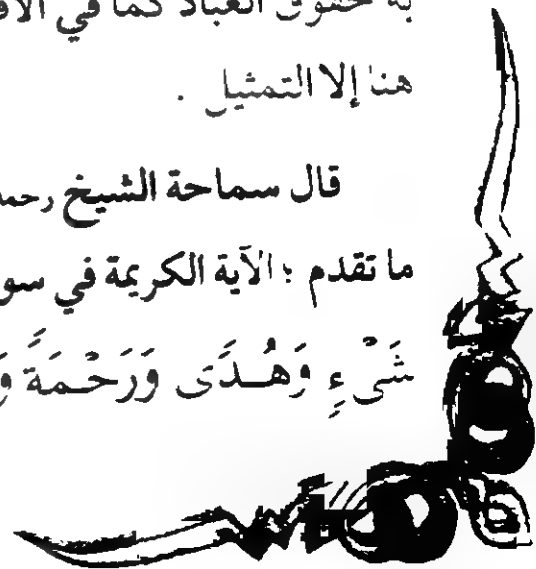 به حقوق العباد كما في
هنا إلا التمثيل .
قال سماحة الشيخ
ما تقدم ؛ الآية الكريمة في
شَيْءٍ وَهُدًى وَرَحْمَةً